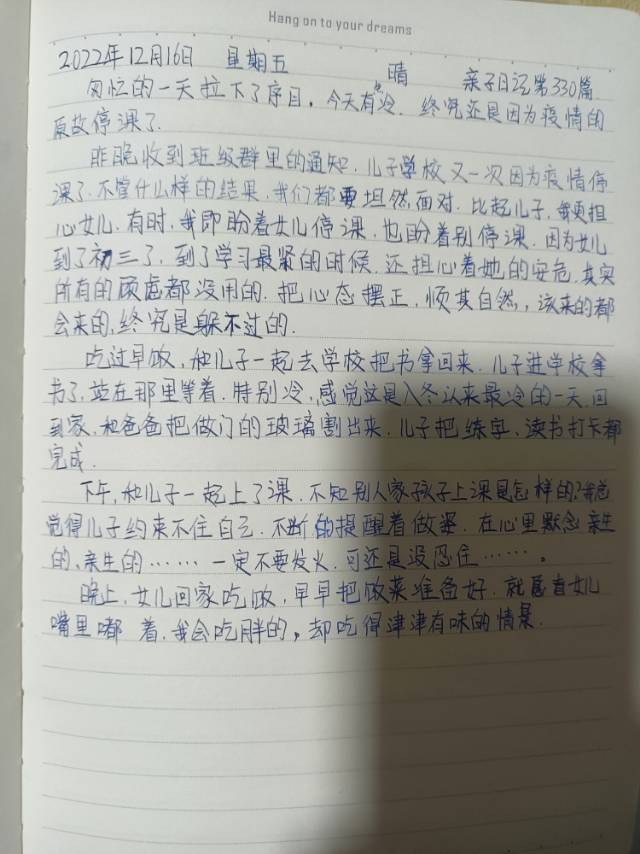 Hang on to your dreams
2022年12月16日 星期五 晴 亲子日记第330篇
匆忙的一天拉下了序目，今天有点冷．终究还是因为疫情的
原故停课了．
昨晚收到班级群里的通知．儿子学校又一次因为疫情停
课了．不管什么样的结果．我们都要坦然面对．比起儿子．我更担
心女儿．有时．我即盼着女儿停课．也盼着别停课．因为女儿
到了初三了．到了学习最紧的时候．还担心着她的安危．其实
所有的顾虑都没用的．把心态摆正．顺其自然，该来的都
会来的，终究是躲不过的．
吃过早饭，和儿子一起去学校把书拿回来．儿子进学校拿
书了．站在那里等着．特别冷．感觉这是入冬以来最冷的一天．回
到家．和爸爸把做门的玻璃割出来．儿子把练字、读书打卡都
完成．
下午，和儿子一起上了课．不知别人家孩子上课是怎样的？我总
觉得儿子约束不住自己．不断的提醒着做姿．在心里默念亲生
的、亲生的……一定不要发火．可还是没忍住……。
晚上，女儿回家吃饭，早早把饭菜准备好．就愿看女儿
嘴里嘟 着．我会吃胖的，却吃得津津有味的情景．